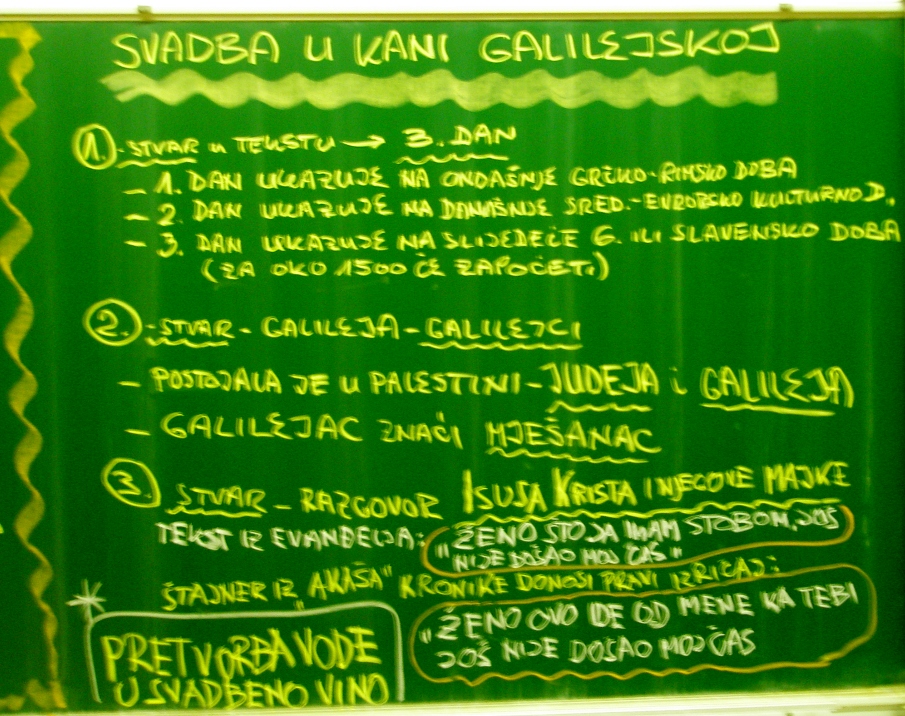 SVADBA U KANI GALILEJSKOJ
1. STVAR U TEKSTU → 3. DAN
- 1. DAN UKAZUJE NA ONDAŠNJE GRČKO-RIMSKO DOBA
- 2. DAN UKAZUJE NA DANAŠNJE SRED.-EVROPSKO KULTURNO D.
- 3. DAN UKAZUJE NA SLIJEDEĆE 6. ILI SLAVENSKO DOBA
(ZA OKO 1500 ĆE ZAPOČETI)
2. STVAR - GALILEJA - GALILEJCI
- POSTOJALA JE U PALESTINI - JUDEJA i GALILEJA
- GALILEJAC ZNAČI MJEŠANAC
3. STVAR - RAZGOVOR ISUSA KRISTA I NJEGOVE MAJKE
TEKST IZ EVANĐELJA: "ŽENO ŠTO JA IMAM S TOBOM, JOŠ
NIJE DOŠAO MOJ ČAS"
ŠTAJNER IZ "AKAŠA" KRONIKE DONOSI PRAVI IZRIČAJ:
"ŽENO OVO IDE OD MENE KA TEBI
JOŠ NIJE DOŠAO MOJ ČAS
PRETVORBA VODE
U SVADBENO VINO